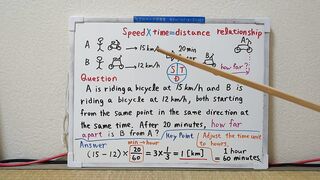 Speed X time = distance relationship
A → 15 km/h 20 min A
B → 12 km/h B how far?
S T
D
Question
A is riding a bicycle at 15 km/H and B is
riding a bicycle at 12 km/H, both starting
from the same point in the same direction at
the same time. After 20 minutes, how far
apart is B from A? / Key Point / Adjust the time unit
to hours
Answer min → hour
(15-12) × 20/60 = 3 × 1/3 = 1 [km] 1 hour = 60 minutes